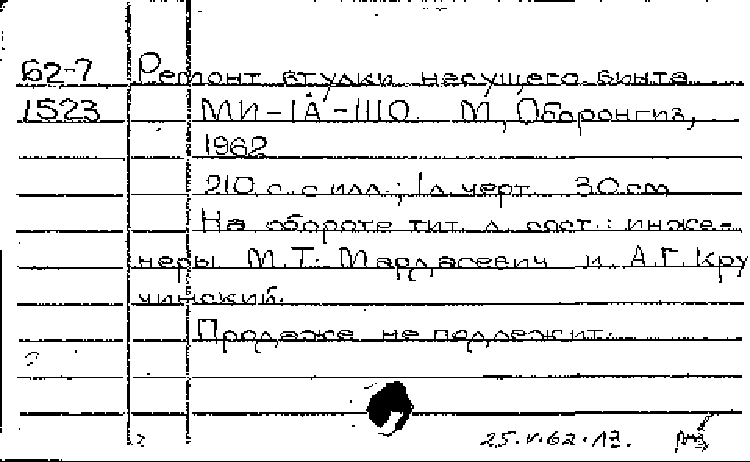 62-7 Ремонт втулки несущего винта
1523 МИ-1А-1110. М., Оборонгиз,
1962
210 с. с илл.; 1 л. черт. 30 см
На обороте тит. л. сост.: инже-
неры М.Т. Мардасевич и А.Г. Кру
чинский.
Продаже не подлежит.
25.V.62.